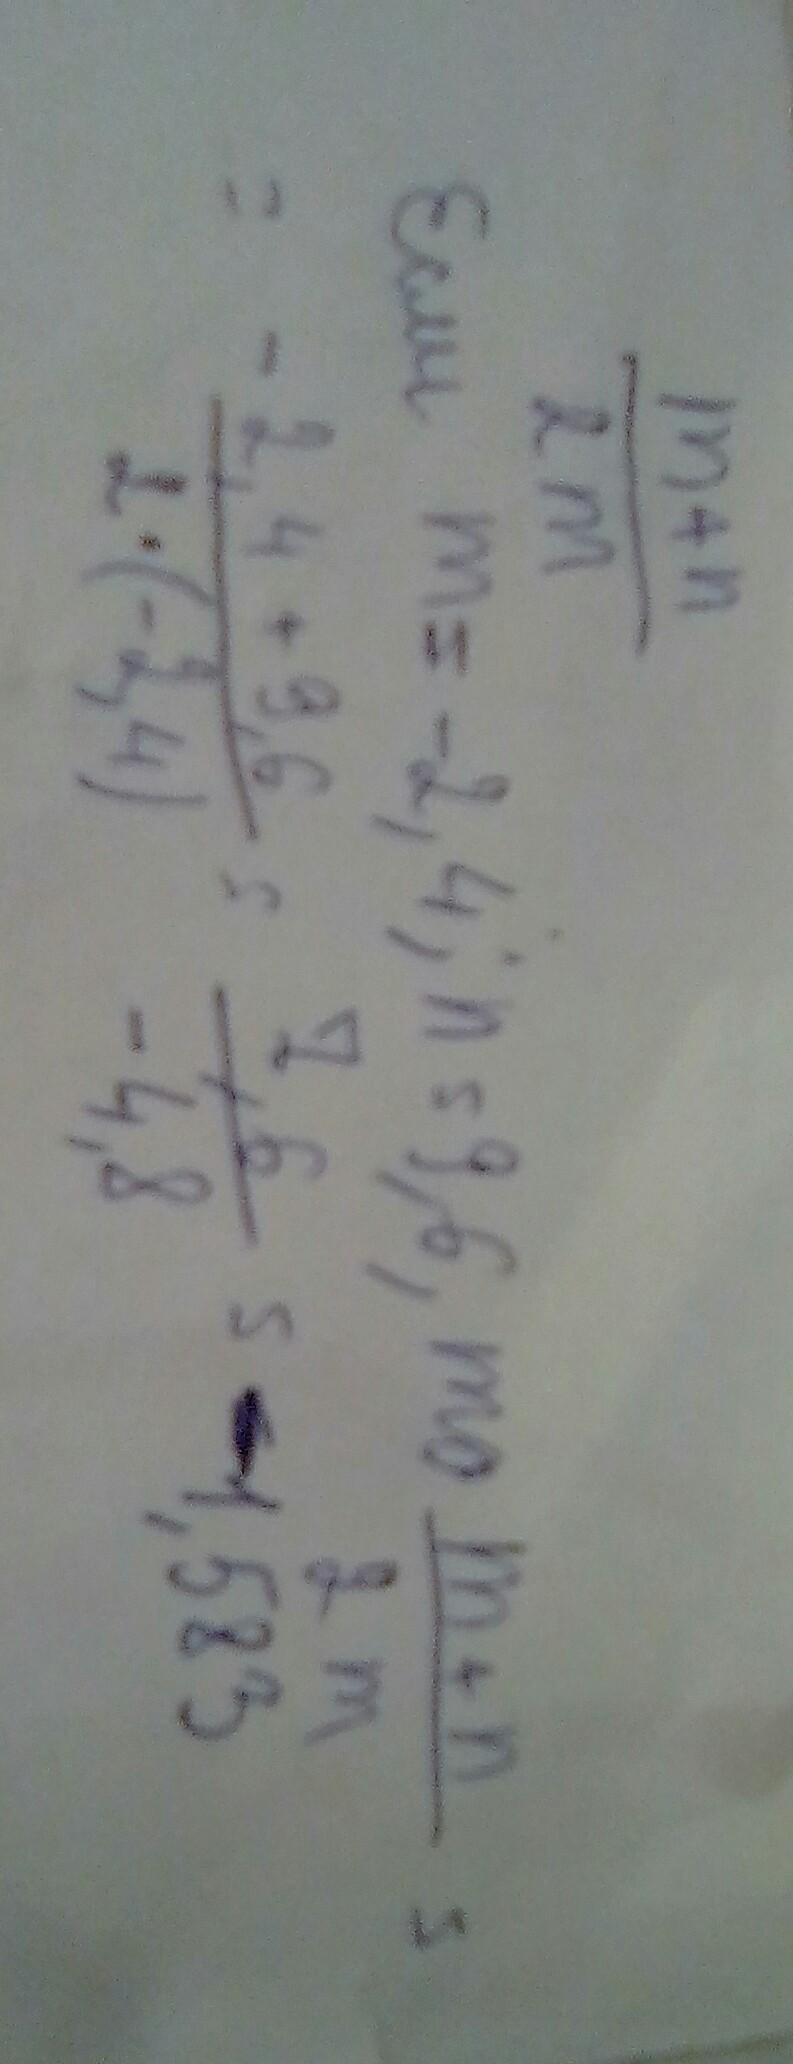 m+n
2m
Если m = -2,4; n = 9,6, то m+n
2m =
= -2,4 + 9,6
2·(-2,4) = 7,6
-4,8 = -1,583